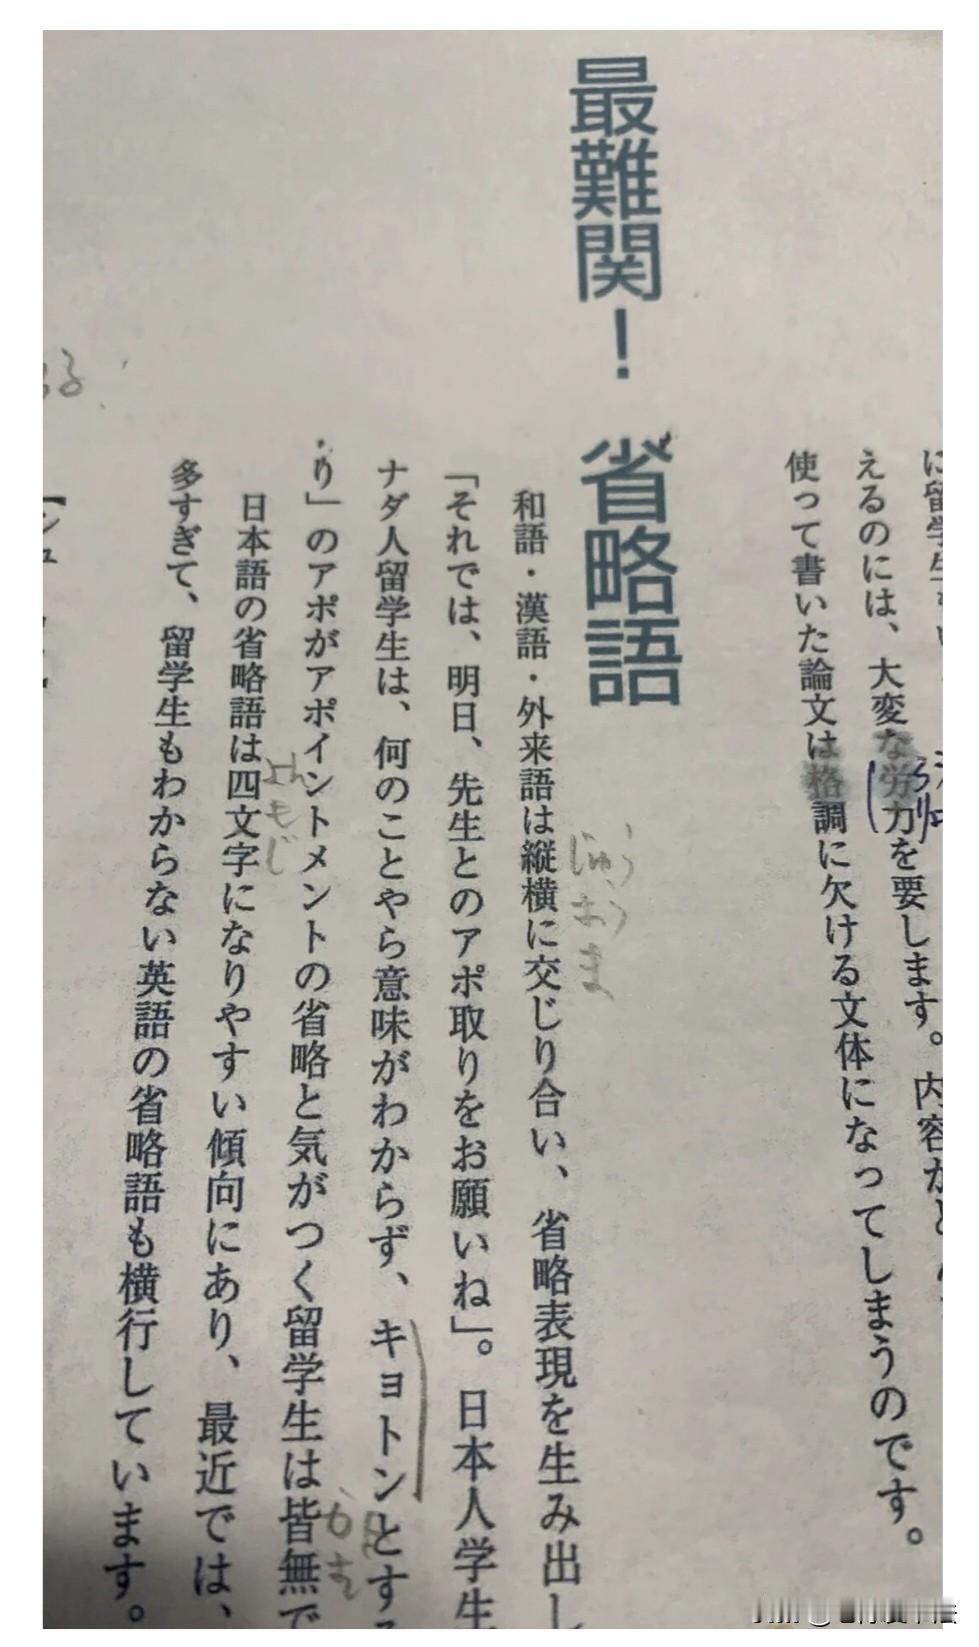 えるのには、大変な労力を要します。内容が
使って書いた論文は格調に欠ける文体になってしまうのです。
最難関！ 省略語
和語・漢語・外来語は縦横に交じり合い、省略表現を生み出し
じゅうおうま
「それでは、明日、先生とのアポ取りをお願いね」。日本人学生
ナダ人留学生は、何のことやら意味がわからず、キョトンとす
り」のアポがアポイントメントの省略と気がつく留学生は皆無で
日本語の省略語は四文字になりやすい傾向にあり、最近では、
よんもじ
多すぎて、留学生もわからない英語の省略語も横行しています。